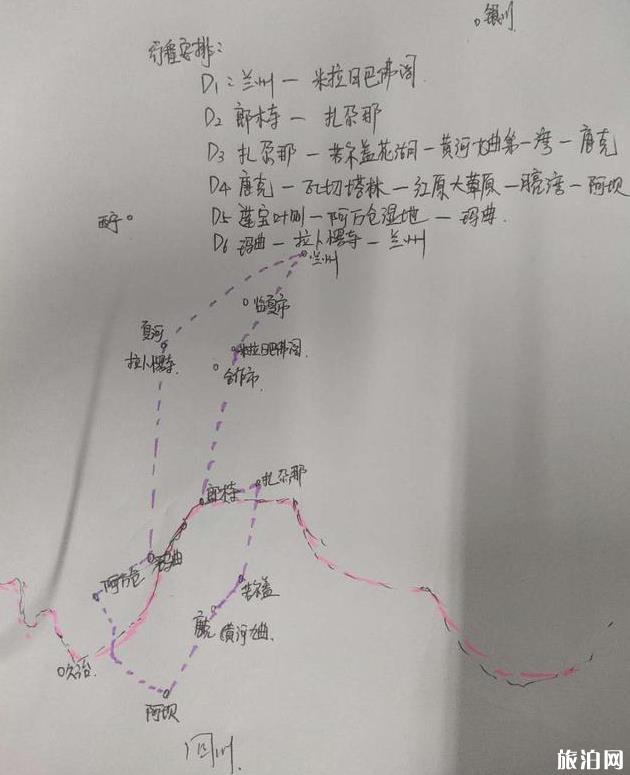 银川
行程安排:
D1: 兰州 — 米拉日巴佛阁
D2 郎木寺 — 扎尕那
D3 扎尕那 — 若尔盖花湖 — 黄河九曲第一湾 — 唐克
D4 唐克 — 瓦切塔林 — 红原大草原 — 月亮湾 — 阿坝
西宁
D5 莲宝叶则 — 阿万仓湿地 — 玛曲.
D6 玛曲 — 拉卜楞寺 — 兰州
兰州
临夏市
夏河
拉卜楞寺
米拉日巴佛阁.
合作市
扎尕那
郎木寺
玛曲
阿万仓
若尔盖
唐克
黄河九曲.
久治
阿坝
四川
旅泊网